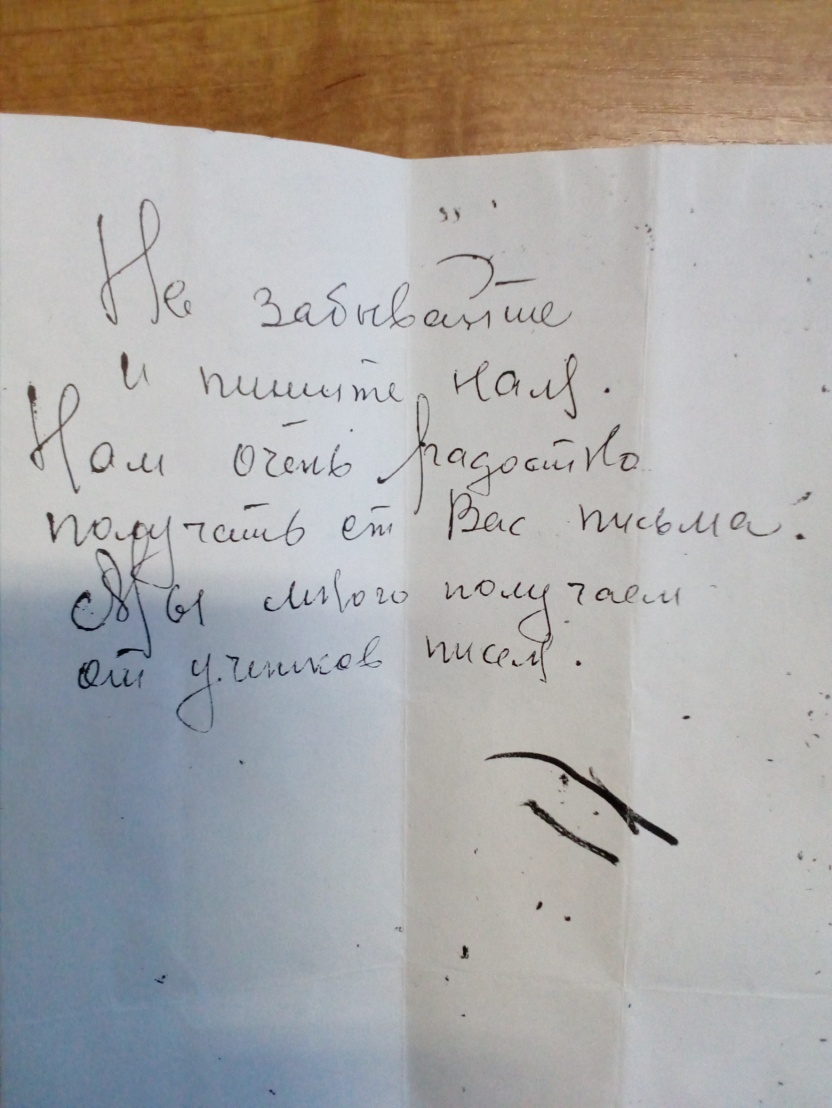 Не забывайте
и пишите нам.
Нам очень радостно
получать от Вас письма!
Мы много получаем
от учеников писем.